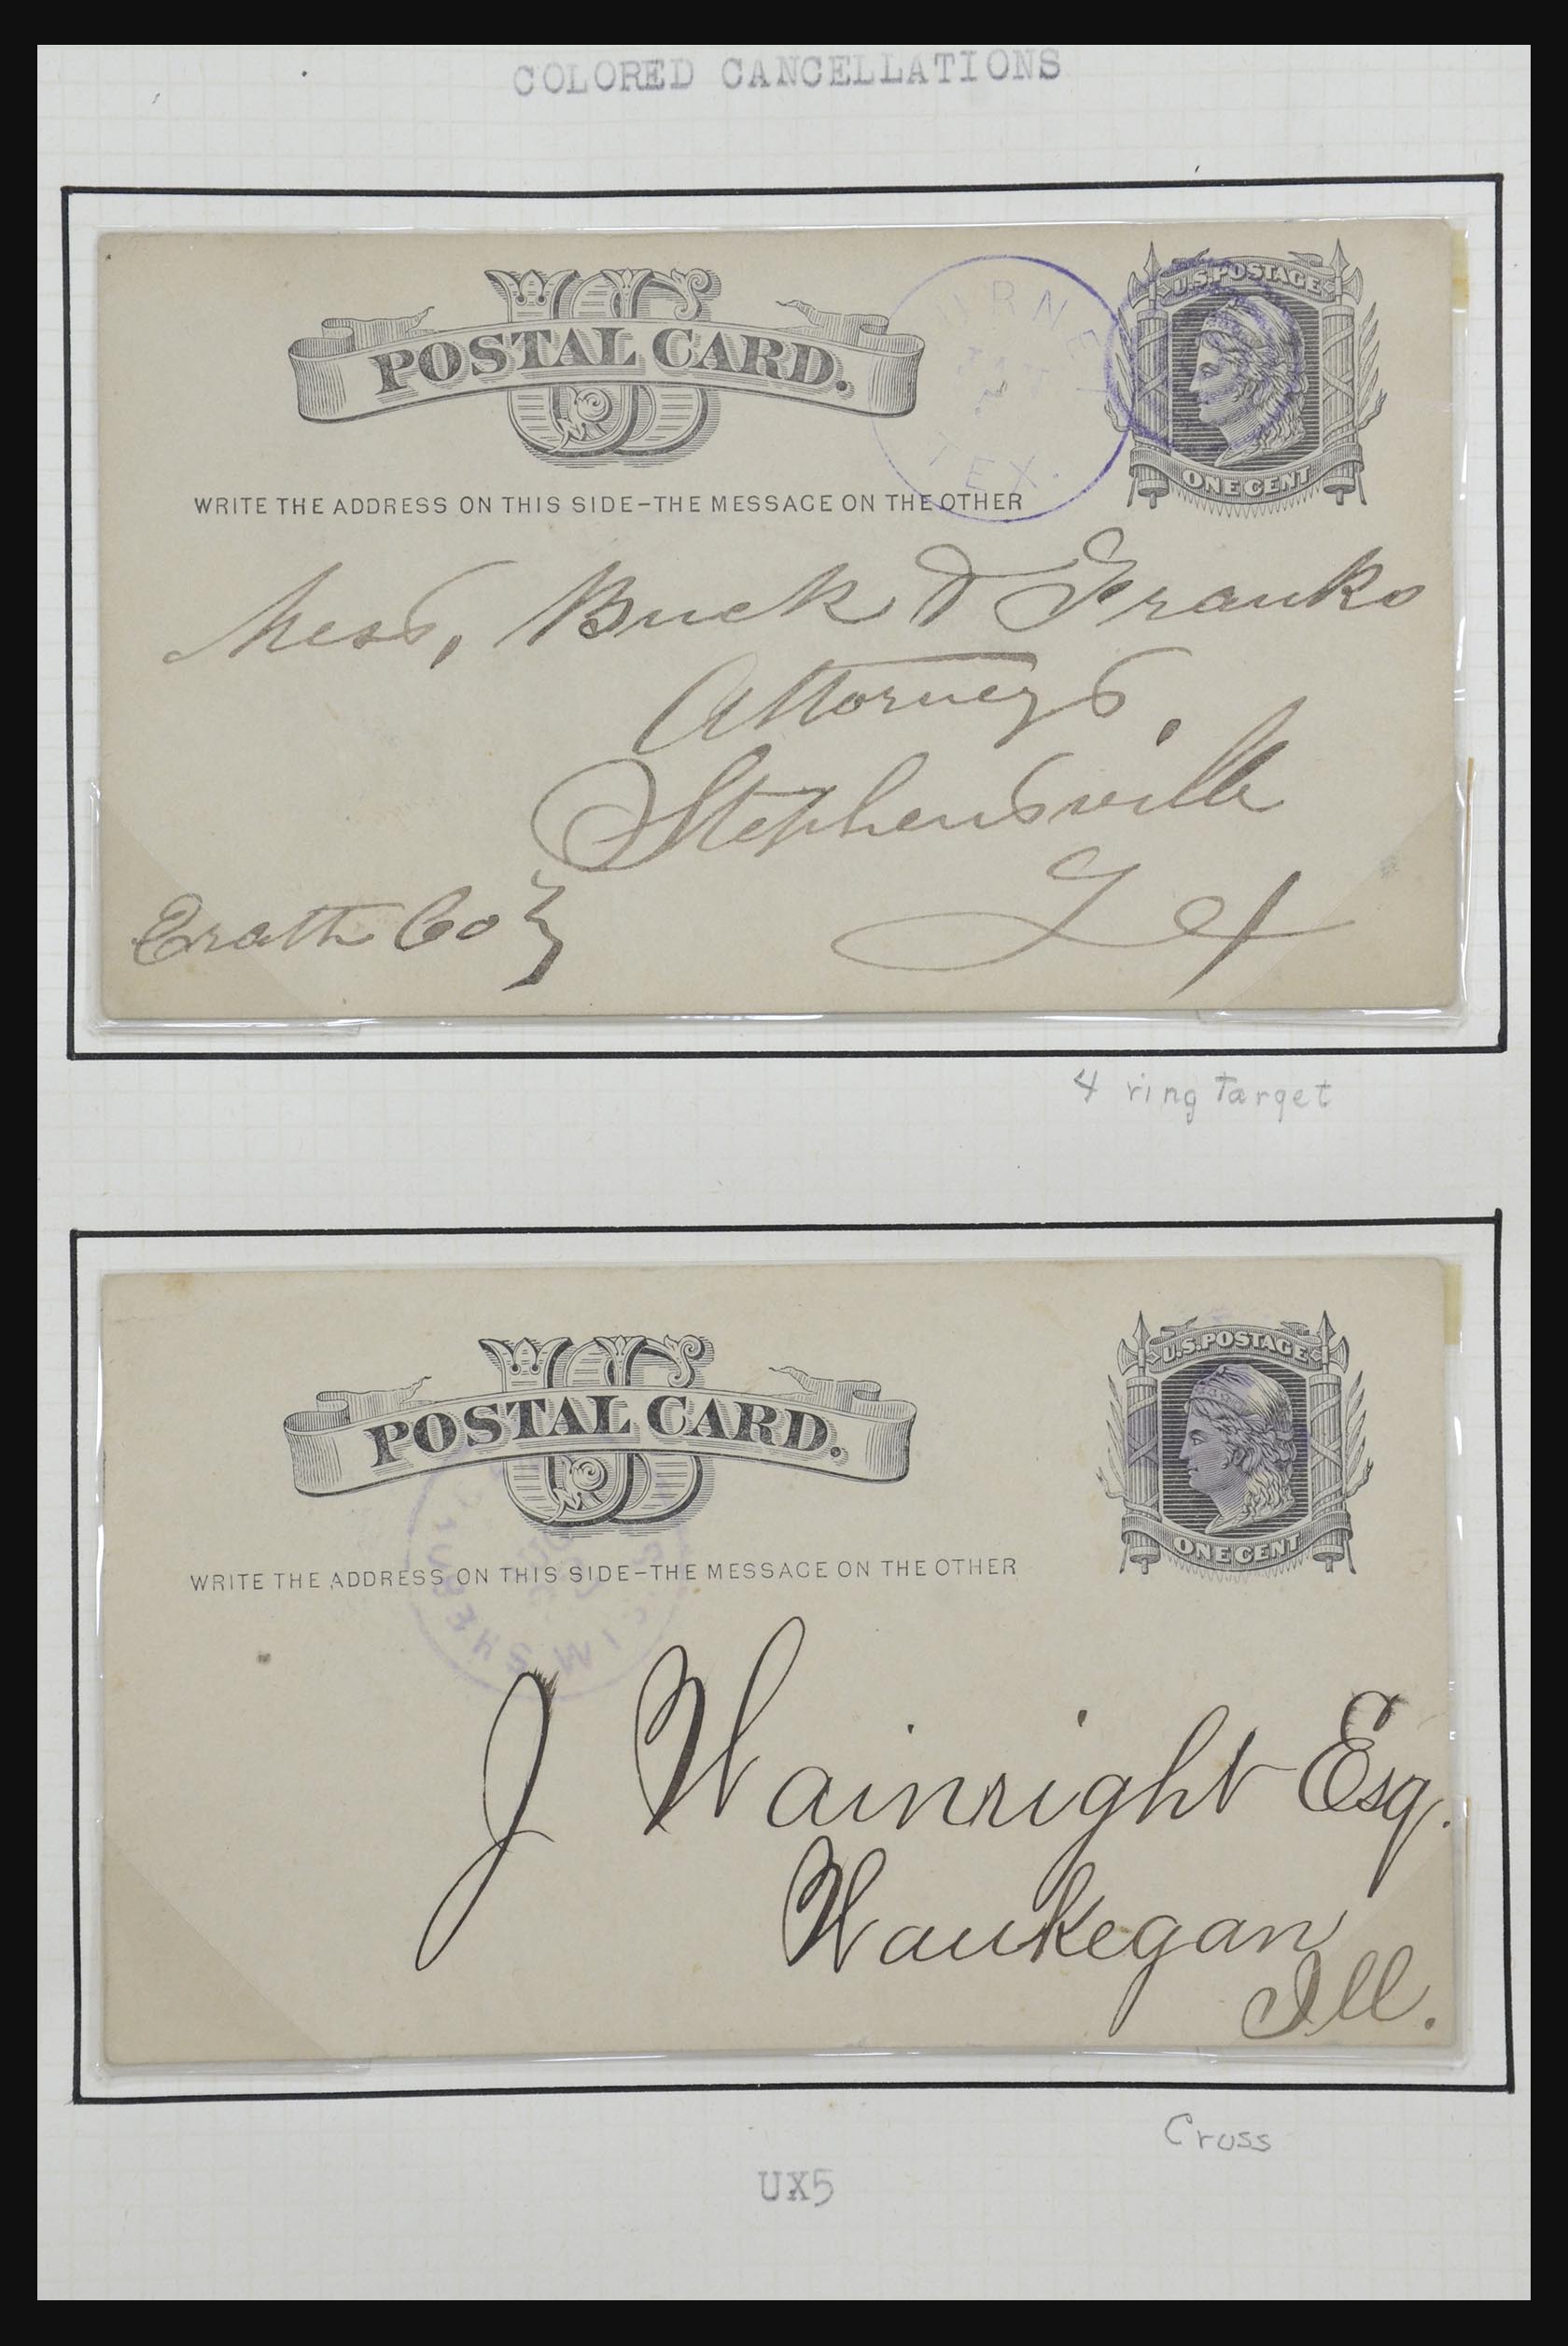 COLORED CANCELLATIONS
US
POSTAL CARD.
U.S. POSTAGE
ONE CENT
TEX.
WRITE THE ADDRESS ON THIS SIDE-THE MESSAGE ON THE OTHER
Mess, Buck & Franks
Attorneys,
Stephensville
Erath Co }
Tex
4 ring target
US
POSTAL CARD.
U.S. POSTAGE
ONE CENT
WRITE THE ADDRESS ON THIS SIDE-THE MESSAGE ON THE OTHER
J Wainright Esq.
Waukegan
Ill.
Cross
UX5